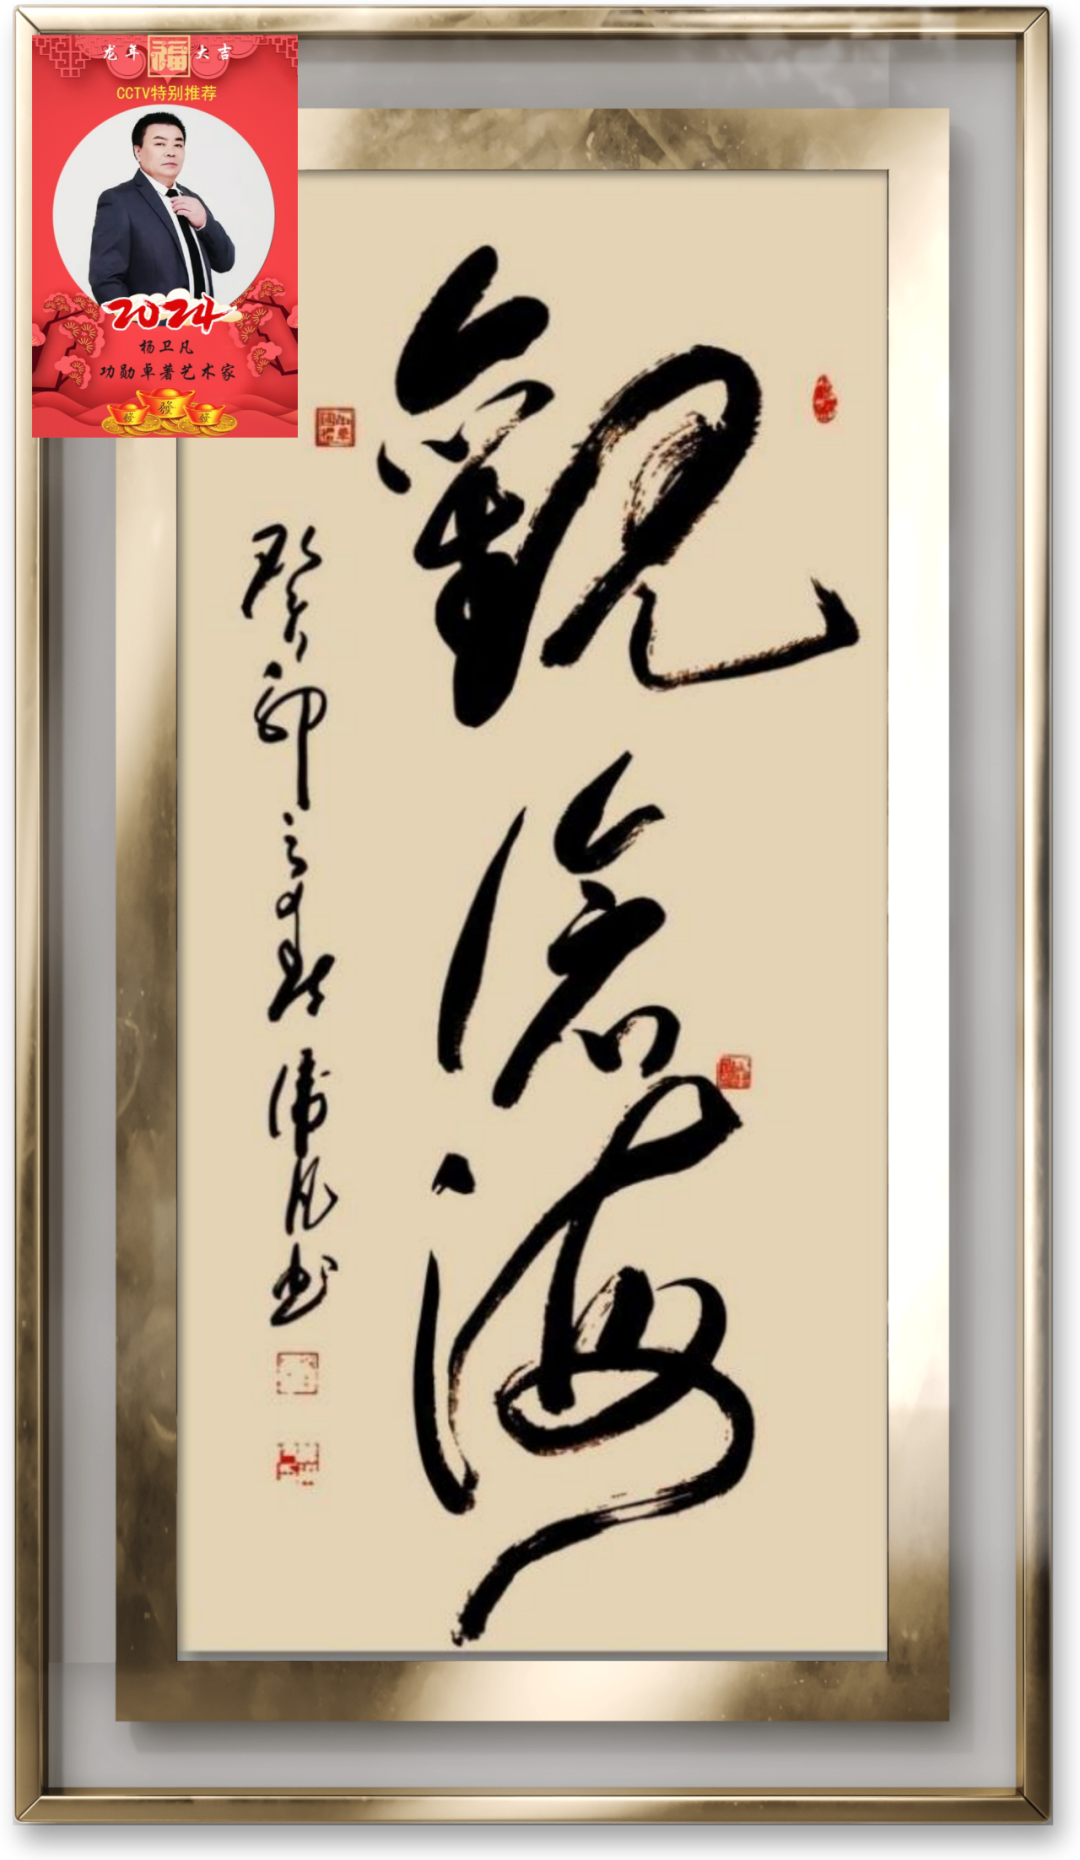 龙年 福 大吉
CCTV特别推荐
2024
杨卫凡
功勋卓著艺术家
發 發 發
觀滄海
癸卯之春 衛凡书